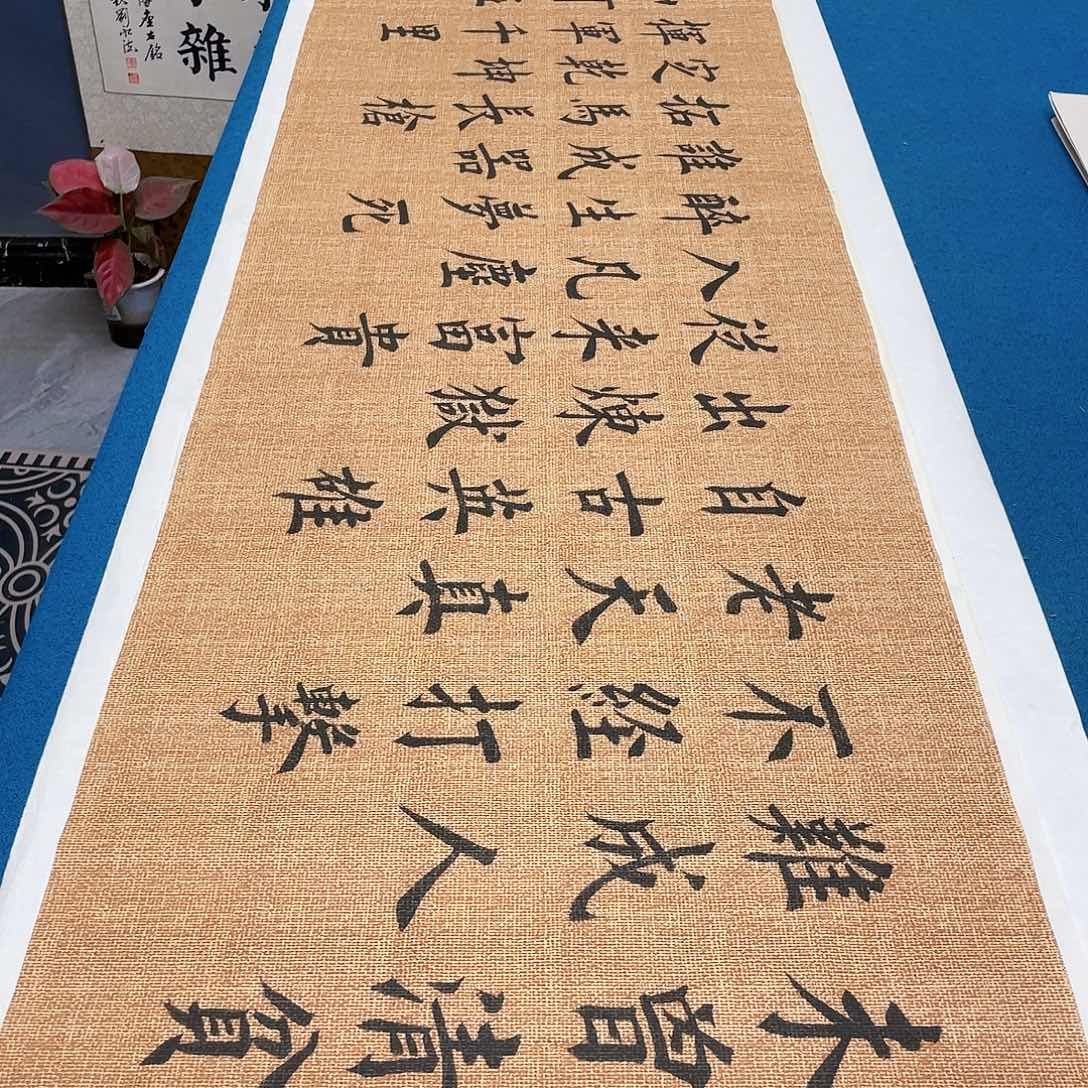 未曾清貧
難成人
不經打擊
老天真
自古英雄
出煉獄
從来富貴
入凡塵
醉生夢死
誰成器
拓馬長槍
定乾坤
揮軍千里
雜